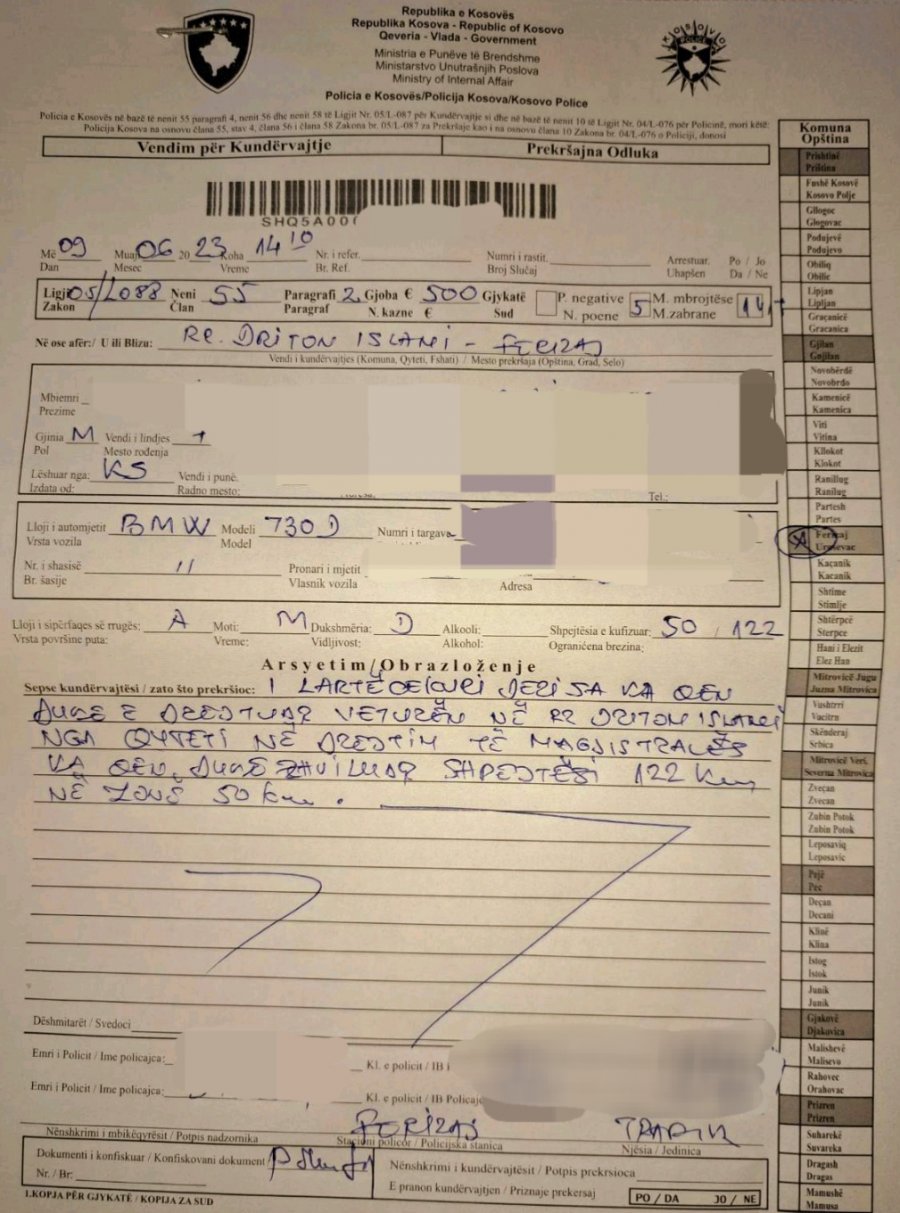 Republika e Kosovës
Republika Kosova - Republic of Kosovo
Qeveria - Vlada - Government
Ministria e Punëve të Brendshme
Ministarstvo Unutrašnjih Poslova
Ministry of Internal Affair
Policia e Kosovës/Policija Kosova/Kosovo Police
KOSOVO
POLICE
Policia e Kosovës në bazë të nenit 55 paragrafi 4, nenit 56 dhe nenit 58 të Ligjit Nr. 05/L-087 për Kundërvajtje si dhe në bazë të nenit 10 të Ligjit Nr. 04/L-076 për Policinë, mori këtë:
Policija Kosova na osnovo člana 55, stav 4, člana 56 i člana 58 Zakona br. 05/L-087 za Prekršaje kao i na osnovo člana 10 Zakona br. 04/L-076 o Policiji, donosi
Vendim për Kundërvajtje Prekršajna Odluka
SHQ5A00
Më 09 Muaj 06 20 23 Koha 14 10 Nr. i refer. Numri i rastit. Arrestuar. Po / Jo
Dan Mesec Vreme Br. Ref. Broj Slučaj Uhapšen Da / Ne
Ligji 05/L088 Neni 55 Paragrafi 2. Gjoba € 500 Gjykatë P. negative 5 M. mbrojtëse 14
Zakon Član Paragraf N. kazne € Sud N. poene M.zabrane
Në ose afër:/ U ili Blizu: RR. DRITON ISLAMI - FERIZAJ
Vendi i kundërvajtjes (Komuna, Qyteti, Fshati) / Mesto prekršaja (Opština, Grad, Selo)
Mbiemri
Prezime
Gjinia M Vendi i lindjes
Pol Mesto rođenja
Lëshuar nga: KS Vendi i punë.
Izdata od: Radno mesto: Tel.:
Lloji i automjetit BMW Modeli 730D Numri i targave
Vrsta vozila Model
Nr. i shasisë 11 Pronari i mjetit
Br. šasije Vlasnik vozila Adresa
Lloji i sipërfaqes së rrugës: A Moti: M Dukshmëria: D Alkooli: Shpejtësia e kufizuar: 50 / 122
Vrsta površine puta: Vreme: Vidljivost: Alkohol: Ograničena brezina:
Arsyetim/Obrazloženje
Sepse kundërvajtësi / zato što prekršioc: I LARTË CEKURI DERI SA KA QEN
DUKE E DREJTUAR VETURËN NË RR DRITON ISLAMI
NGA QYTETI NË DREJTIM TË MAGJISTRALËS
KA QEN DUKE ZHVILLUAR SHPEJTËSI 122 Km
NË ZONË 50 km.
Dëshmitarët / Svedoci
Emri i Policit / Ime policajca: Kl. e policit / IB
Emri i Policit / Ime policajca: Kl. e policit / IB Policaj
FERIZAJ TRAFIK
Nënshkrimi i mbikëqyrësit / Potpis nadzornika Stacioni policor / Policijska stanica Njësia / Jedinica
Dokumenti i konfiskuar / Konfiskovani dokument
Nr. / Br:
Nënshkrimi i kundërvajtësit / Potpis prekrsioca
E pranon kundërvajtjen / Priznaje prekersaj PO / DA JO / NE
1.KOPJA PËR GJYKATË / KOPIJA ZA SUD
Komuna
Opština
Prishtinë
Priština
Fushë Kosovë
Kosovo Polje
Gllogoc
Glogovac
Podujevë
Podujevo
Obiliq
Obilic
Lipjan
Lipljan
Graçanicë
Gracanica
Gjilan
Gnjilan
Novobërdë
Novobrdo
Kamenicë
Kamenica
Viti
Vitina
Kllokot
Klokot
Ranillug
Ranilug
Partesh
Partes
Ferizaj
Urosevac
Kaçanik
Kacanik
Shtime
Stimlje
Shtërpcë
Sterpce
Hani i Elezit
Elez Han
Mitrovicë Jugu
Juzna Mitrovica
Vushtrri
Vucitrn
Skënderaj
Srbica
Mitrovicë Veri,
Severna Mitrovica
Zveçan
Zvecan
Zubin Potok
Zubin Potok
Leposaviq
Leposavic
Pejë
Pec
Deçan
Decani
Klinë
Klina
Istog
Istok
Junik
Junik
Gjakovë
Djakovica
Malishevë
Malisevo
Rahovec
Orahovac
Prizren
Prizren
Suharekë
Suvareka
Dragash
Dragas
Mamushë
Mamusa